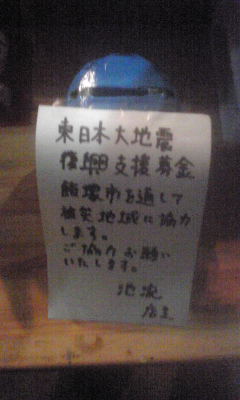 東日本大地震
復興支援募金
飯塚市を通して
被災地域に協力
します。
ご協力お願い
いたします。
池流
店主